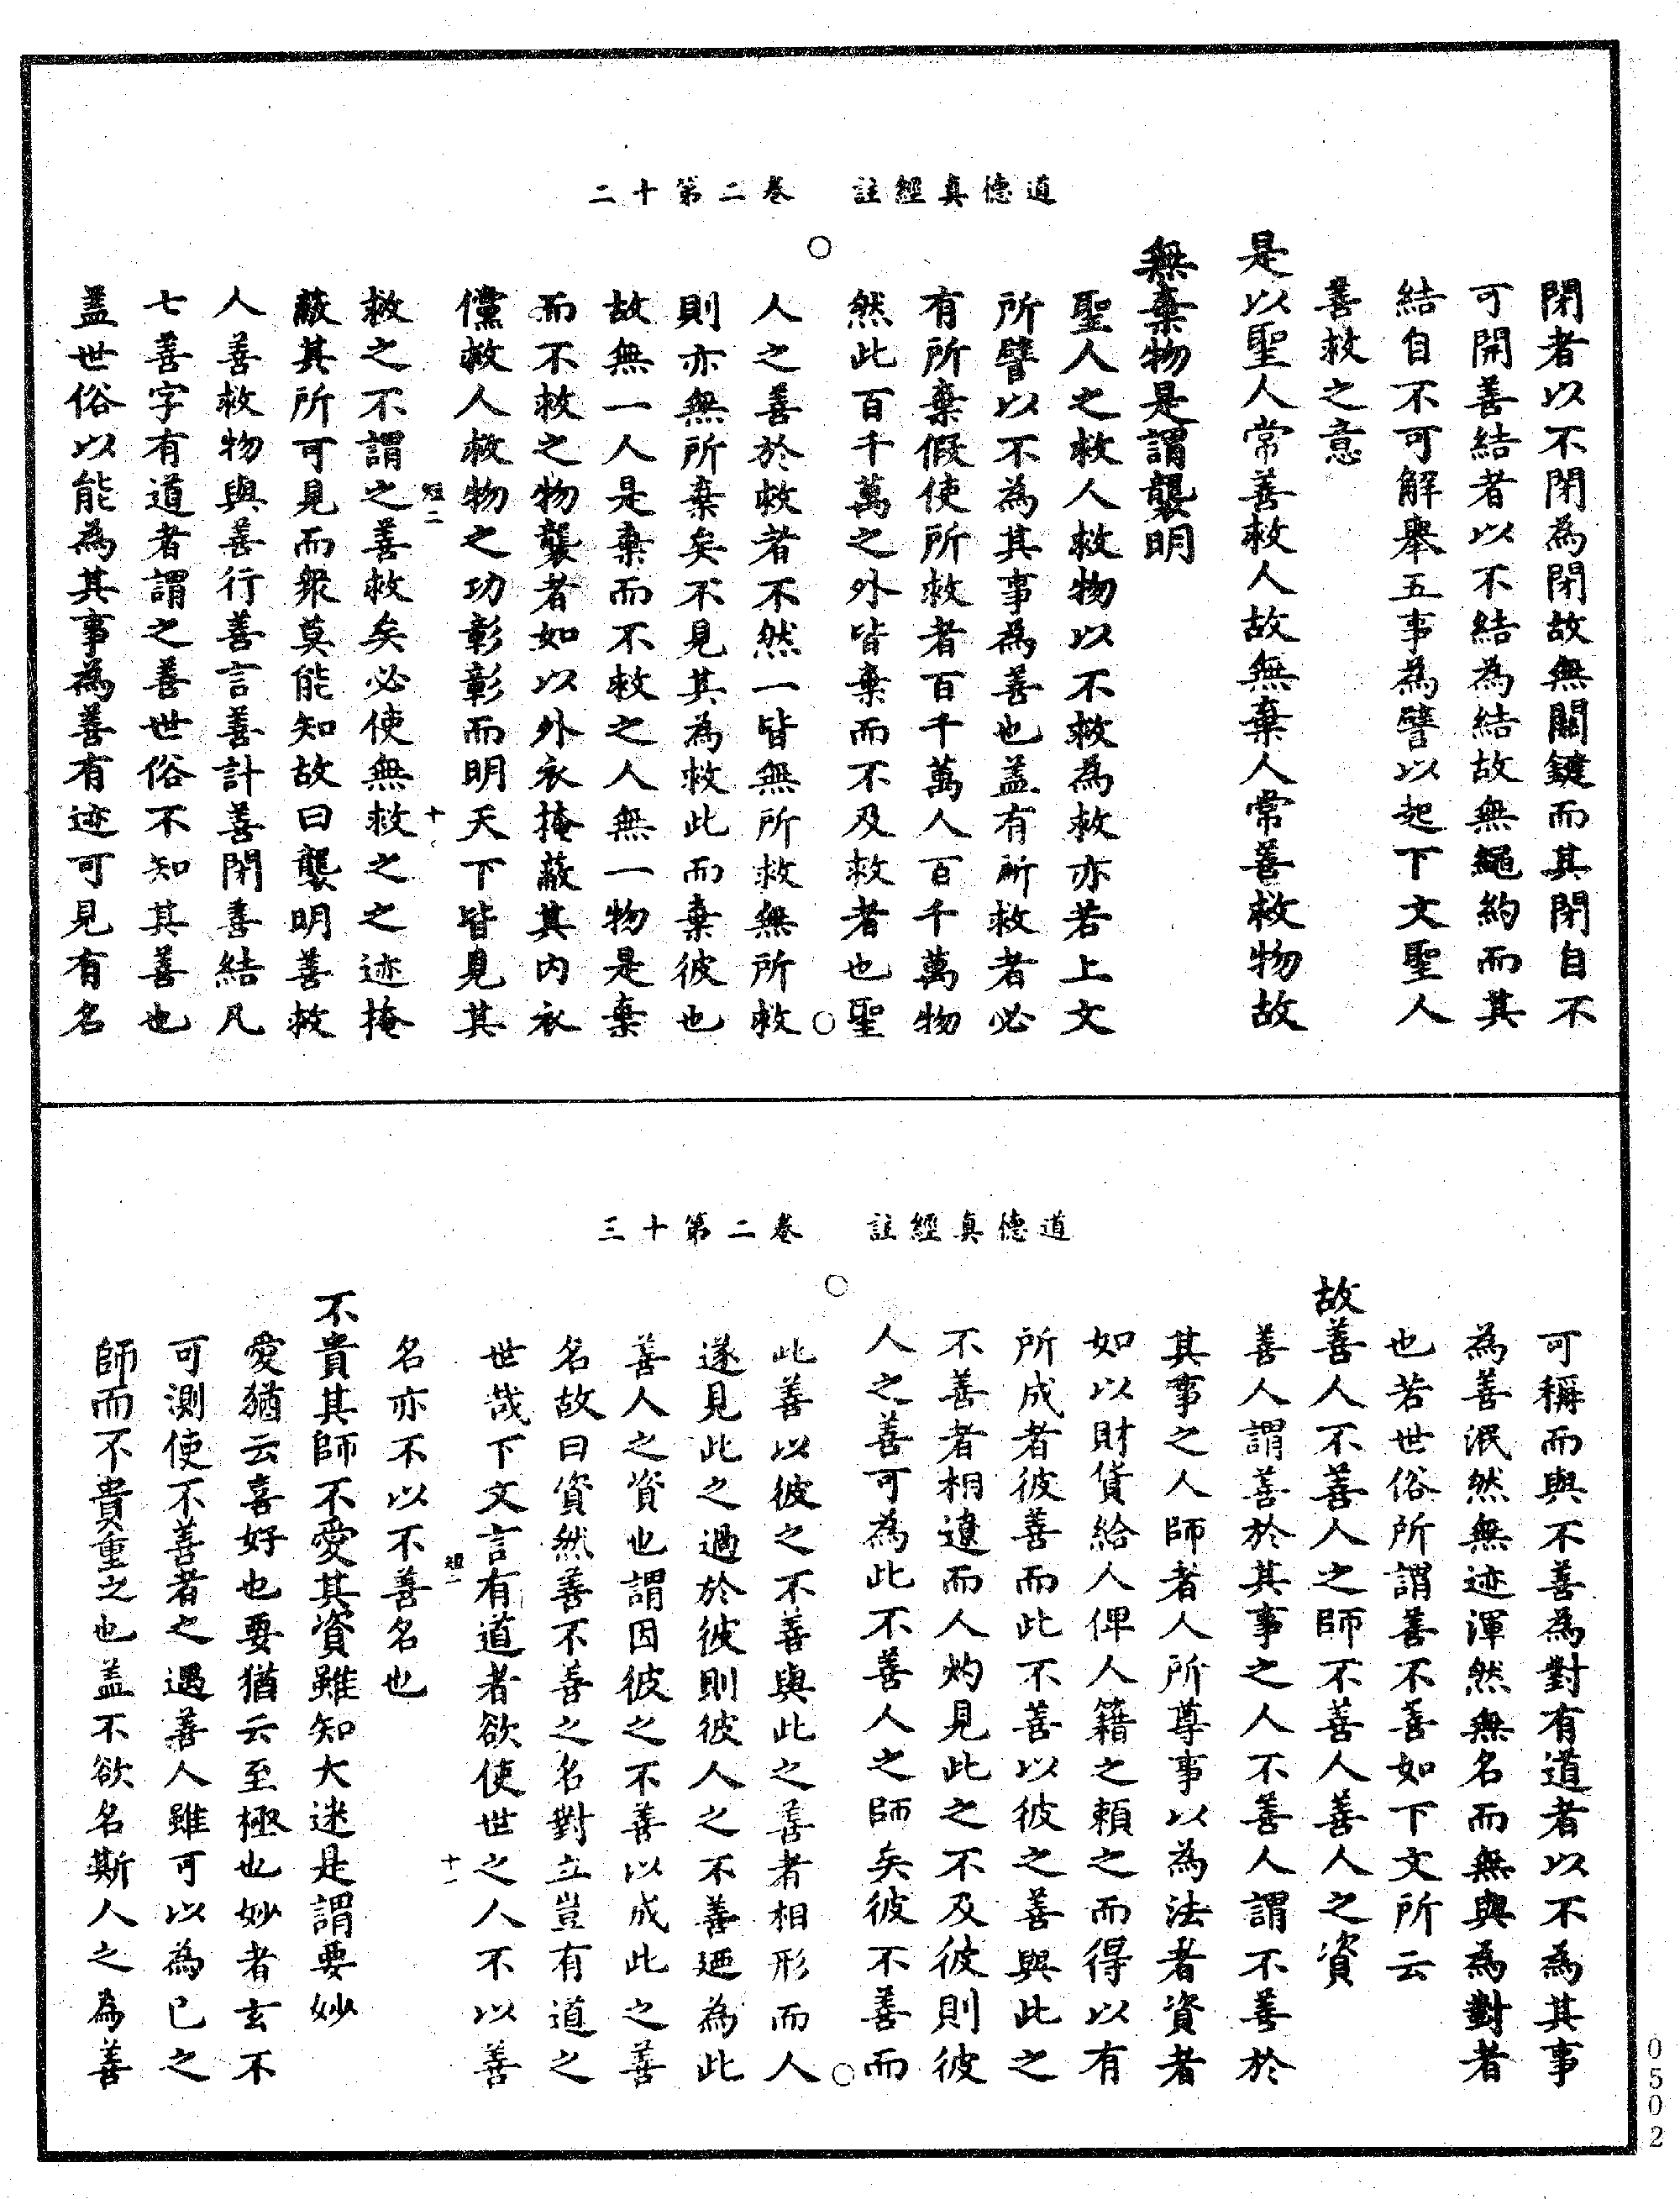 道德真經註　卷二第十二
閉者以不閉為閉故無關鍵而其閉自不
可開善結者以不結為結故無繩約而其
結自不可解舉五事為譬以起下文聖人
善救之意
是以聖人常善救人故無棄人常善救物故
無棄物是謂襲明
聖人之救人救物以不救為救亦若上文
所譬以不為其事為善也盖有所救者必
有所棄假使所救者百千萬人百千萬物
然此百千萬之外皆棄而不及救者也聖
人之善於救者不然一皆無所救無所救
則亦無所棄矣不見其為救此而棄彼也
故無一人是棄而不救之人無一物是棄
而不救之物襲者如以外衣掩蔽其內衣
儻救人救物之功彰彰而明天下皆見其
短二　十
救之不謂之善救矣必使無救之之迹掩
蔽其所可見而衆莫能知故曰襲明善救
人善救物與善行善言善計善閉善結凡
七善字有道者謂之善世俗不知其善也
盖世俗以能為其事為善有迹可見有名
道德真經註　卷二第十三
可稱而與不善為對有道者以不為其事
為善泯然無迹渾然無名而無與為對者
也若世俗所謂善不善如下文所云
故善人不善人之師不善人善人之資
善人謂善於其事之人不善人謂不善於
其事之人師者人所尊事以為法者資者
如以財貨給人俾人籍之賴之而得以有
所成者彼善而此不善以彼之善與此之
不善者相遼而人灼見此之不及彼則彼
人之善可為此不善人之師矣彼不善而
此善以彼之不善與此之善者相形而人
遂見此之過於彼則彼人之不善廼為此
善人之資也謂因彼之不善以成此之善
名故曰資然善不善之名對立豈有道之
世哉下文言有道者欲使世之人不以善
短二　十一
名亦不以不善名也
不貴其師不愛其資雖知大迷是謂要妙
愛猶云喜好也要猶云至極也妙者玄不
可測使不善者之遇善人雖可以為已之
師而不貴重之也盖不欲名斯人之為善
0502